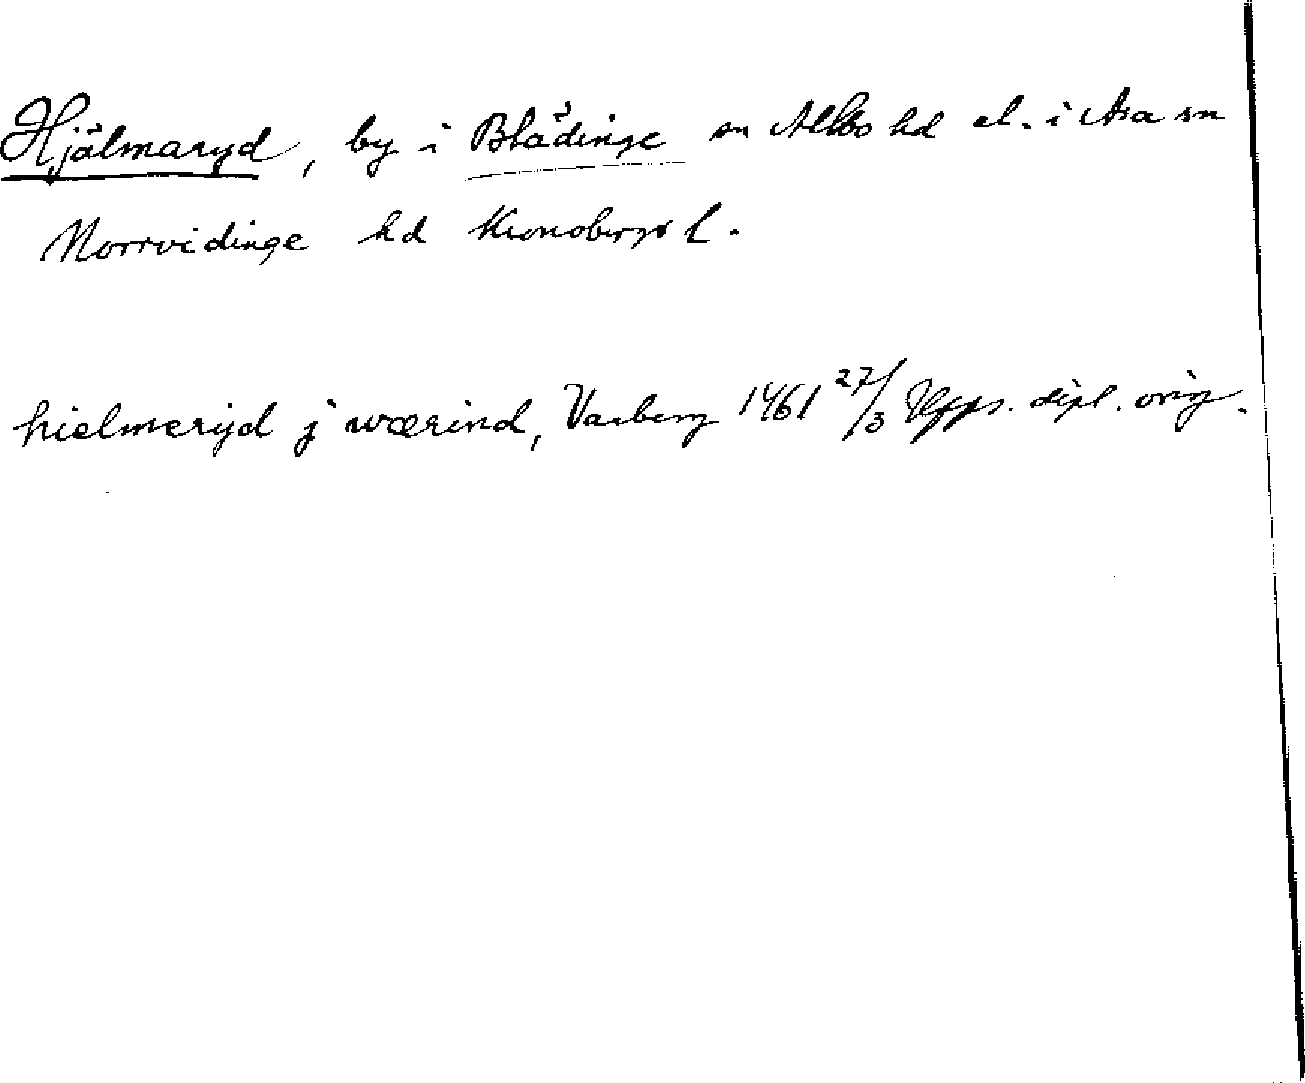 Hjälmaryd, by i Blädinge sn Allbo hd el. i Asa sn
Norrvidinge hd Kronobergs l.
hielmeryd j wærind, Varberg 1461 27/3 Upps. dipl. orig.